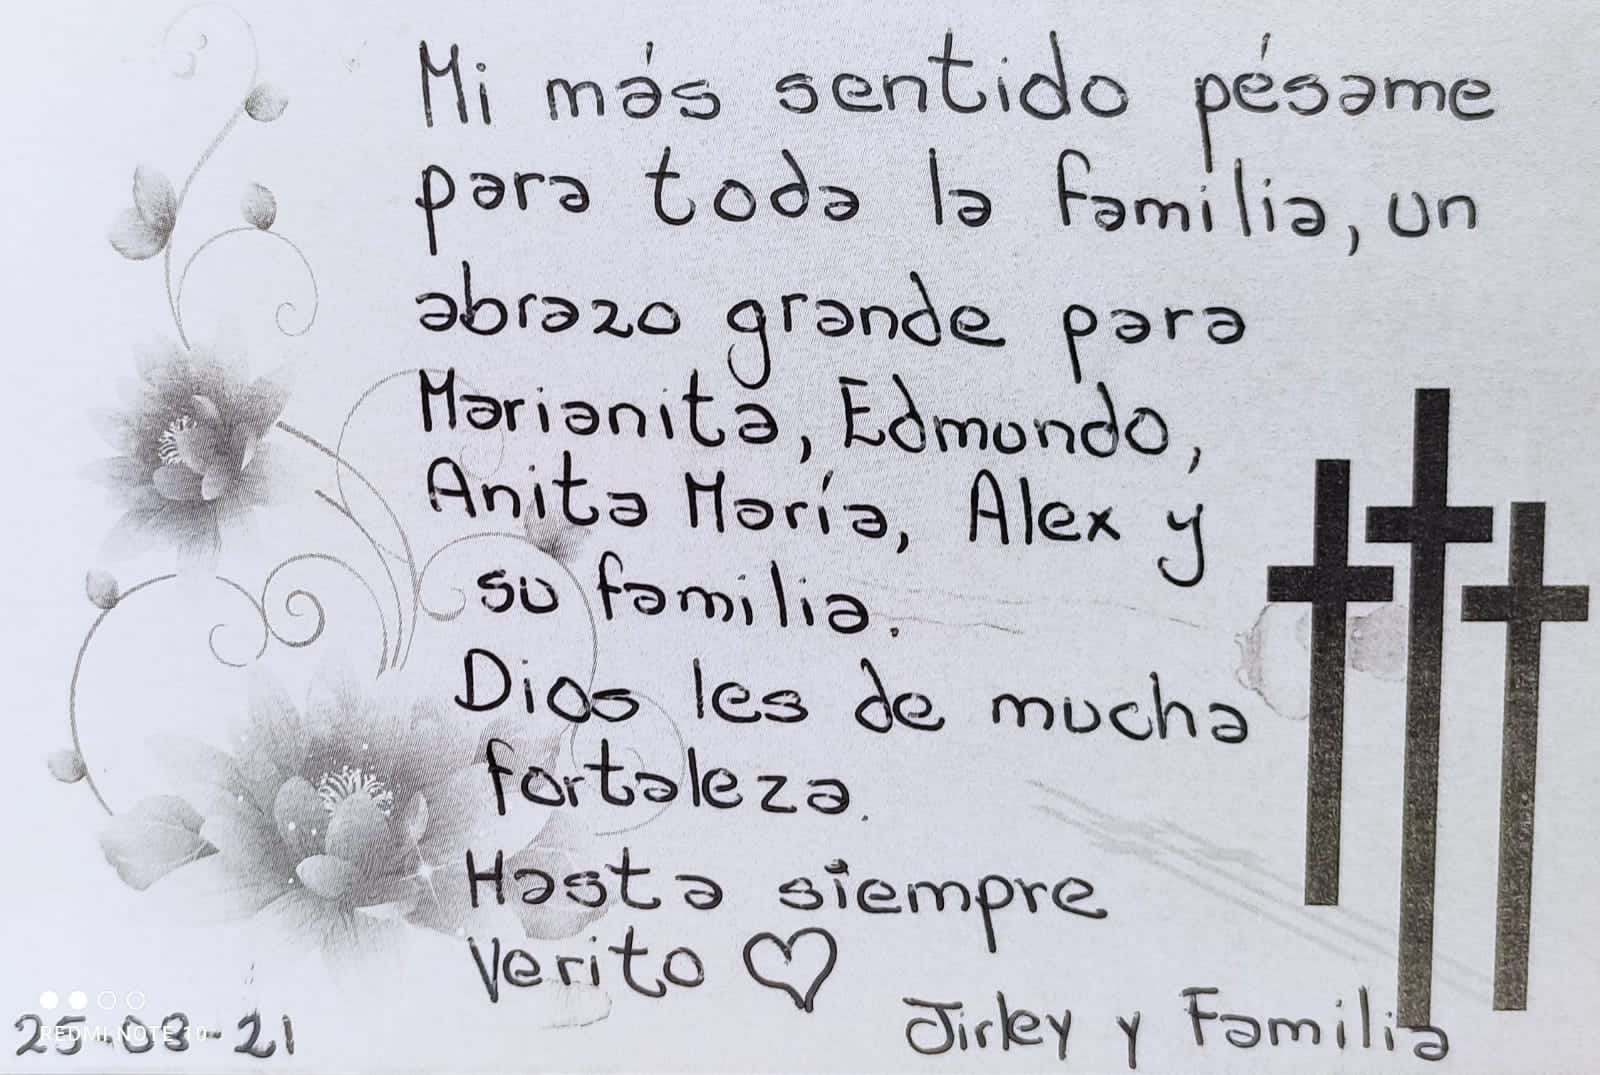 Mi más sentido pésame
para toda la familia, un
abrazo grande para
Marianita, Edmundo,
Anita María, Alex y
su familia.
Dios les de mucha
fortaleza.
Hasta siempre
Verito
Jirley y Familia
25-08-21
REDMI NOTE 10